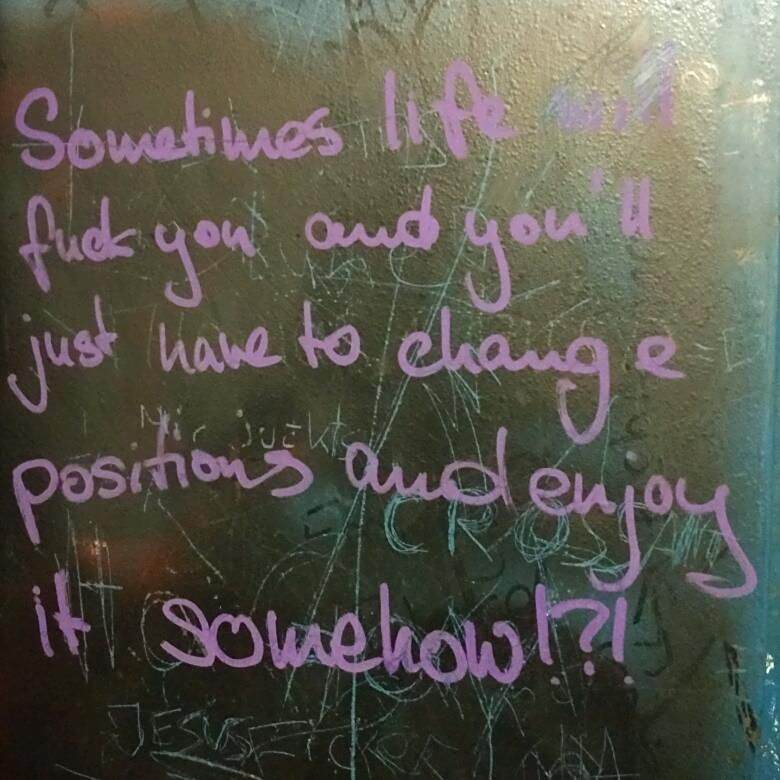 Sometimes life will
fuck you and you'll
just have to change
positions and enjoy
it somehow!?!
Mir juckts
CROSS
JESUS FICKER